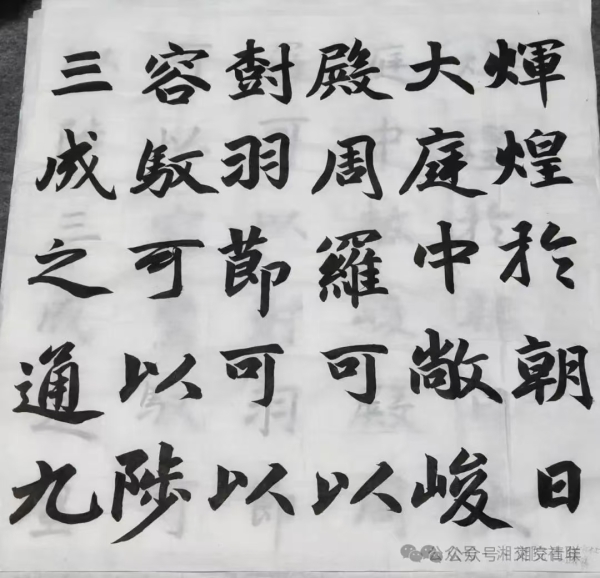 煇煌於朝日
大庭中敞峻
殿周羅可以
尌羽節可以
容馭可以陟
三成之通九
公众号·湘